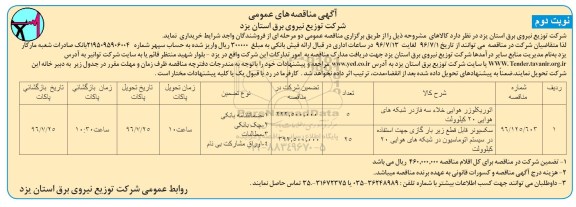 آگهی مناقصه های عمومی
شرکت توزیع نیروی برق استان یزد
نوبت دوم
شرکت توزیع نیروی برق استان یزد در نظر دارد کالاهای مشروحه ذیل را از طریق برگزاری مناقصه عمومی دو مرحله ای از فروشندگان واجد شرایط خریداری نماید.
لذا متقاضیان شرکت در مناقصه می توانند از تاریخ ۹۶/۷/۱ لغایت ۹۶/۷/۱۳ در ساعات اداری در قبال ارائه فیش بانکی به مبلغ ۳۰۰۰۰۰ ریال واریز شده به حساب سپهر شماره ۰۲۱۹۵۰۹۵۹۰۶۰۰۴ بانک صادرات شعبه مارکار
یزد به نام مدیریت منابع سایر درآمدها شرکت توزیع نیروی برق استان یزد جهت دریافت مدارک مناقصه به امور تدارکات این شرکت واقع در یزد - بلوار شهید منتظر قائم یا به سایت شرکت توانیر به آدرس
WWW.Tender.tavanir.org.ir یا سایت شرکت توزیع برق استان یزد به آدرس www.yed.co.ir مراجعه و پیشنهادات خود را باتوجه به مندرجات دفترچه مناقصه ظرف زمان و مهلت مقرر در جدول زیر به دبیر خانه این
شرکت تحویل نمایند. ضمنا به پیشنهادهای تحویل داده شده بعد از انقضامدت، ترتیب اثر داده نخواهد شد. کارفرما در رد یا قبول یک یا کلیه پیشنهادات مختار است.
ردیف
شماره مناقصه
شرح کالا
تعداد
تضمین شرکت در مناقصه
نوع تضمین
زمان تحویل پاکات
تاریخ تحویل پاکات
زمان بازگشائی پاکات
تاریخ بازگشائی پاکات
۱
۹۶/۱۲۵/۶۰۳
اتوریکلوزر هوایی خلاء سه فاز در شبکه های هوایی ۲۰ کیلوولت
۵
سکسیونر قابل قطع زیر بار گازی جهت استفاده در سیستم اتوماسیون در شبکه های هوایی ۲۰ کیلوولت
۲۵
ساعت ۱۰
۹۶/۷/۲۵
ساعت ۱۰:۳۰
۹۶/۷/۲۵
۱- تضمین شرکت در مناقصه برای کل اقلام مناقصه ۴۶۰,۰۰۰,۰۰۰ ریال می باشد
۲- هزینه درج آگهی مناقصه و کسورات قانونی به عهده برنده مناقصه میباشد.
۳- داوطلبان می توانند جهت کسب اطلاعات بیشتر با شماره تلفن : ۰۳۵-۳۶۲۴۸۹۸۹ و ۰۳۵-۳۱۶۷۲۳۷۵ تماس حاصل نمایند.
روابط عمومی شرکت توزیع نیروی برق استان یزد